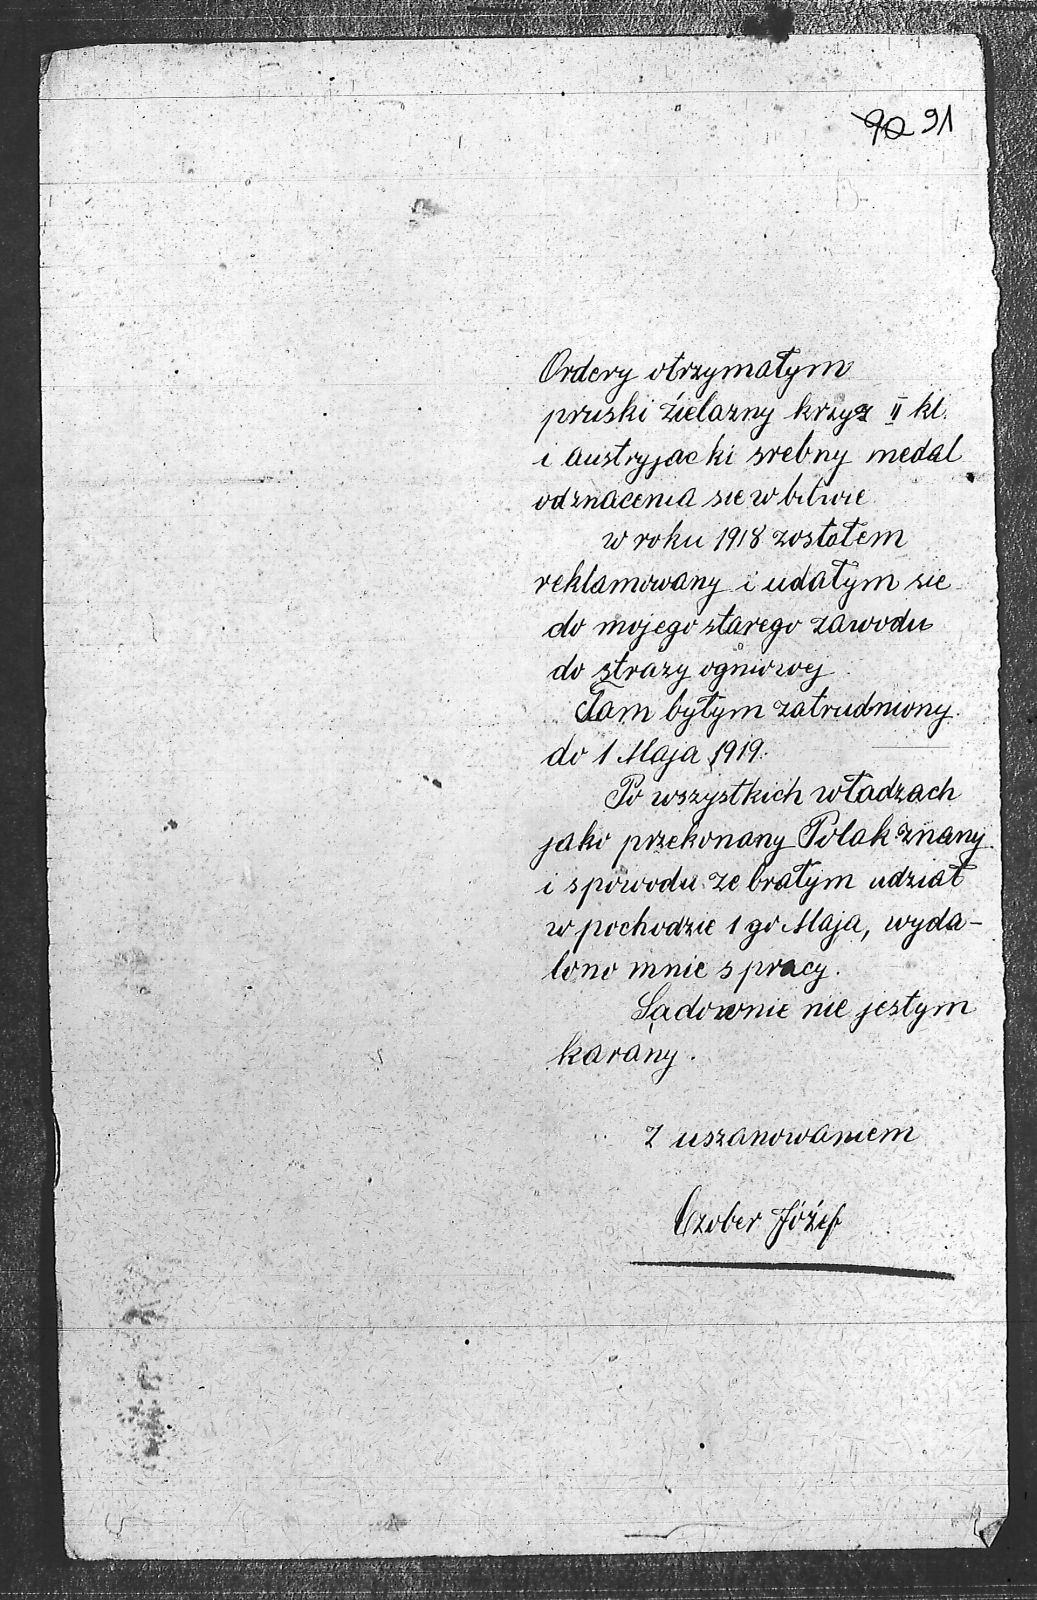 90 91
Ordery otrzymałym
pruski źielazny krzyz II kl.
i austryjacki srebny medal
odznacenia sie w bitwie
w roku 1918 zostałem
reklamowany i udałym sie
do mojego starego zawodu
do strazy ogniowej.
Tam byłym zatrudniony
do 1 Maja 1919.
Po wszystkich władzach
jako przekonany Polak znany
i spowodu ze brałym udział
w pochodzie 1 go Maja, wyda-
lono mnie s pracy.
Sądownie nie jestym
karany.
Z uszanowaniem
Czober Józef